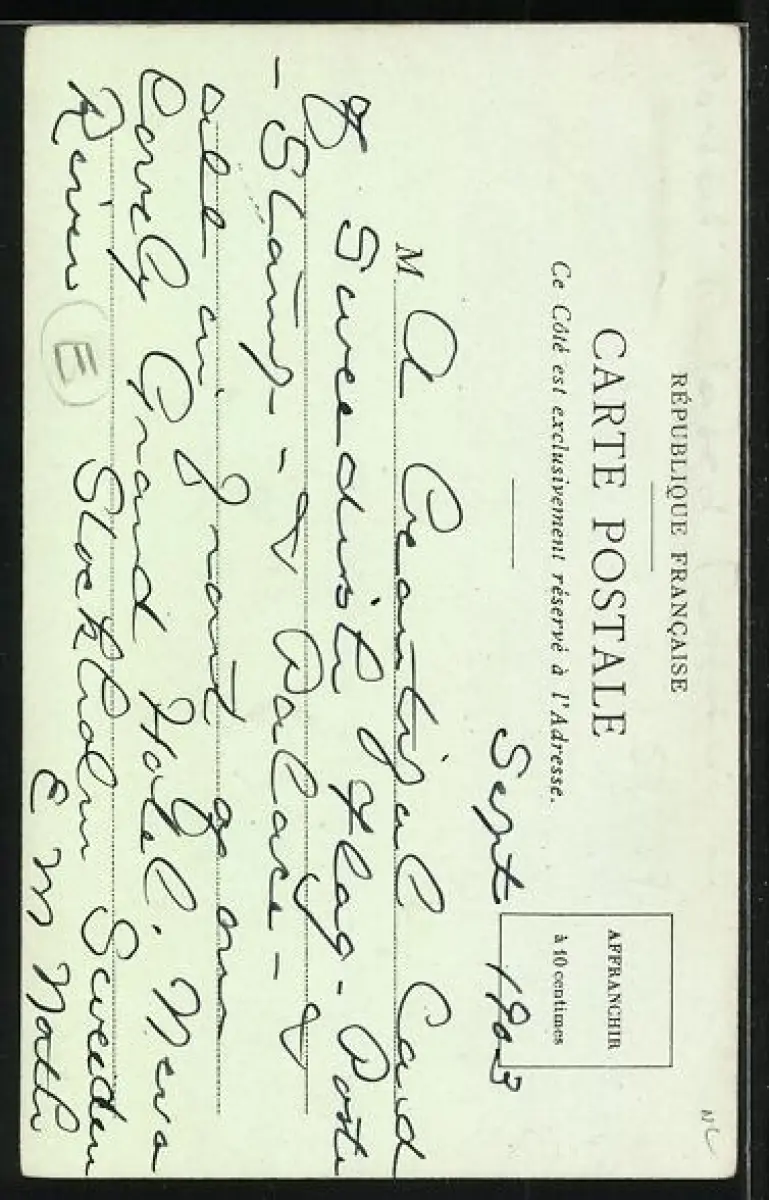 RÉPUBLIQUE FRANÇAISE
CARTE POSTALE
Ce Côté est exclusivement réservé à l'Adresse.
AFFRANCHIR
à 10 centimes
Sept 1903
M A Beautiful Card
of Sweedish Flag - Poste
- Stamp - & Palace - &
all in front of our
Lovely Grand Hotel.
River Stockholm Sweeden
E M
E